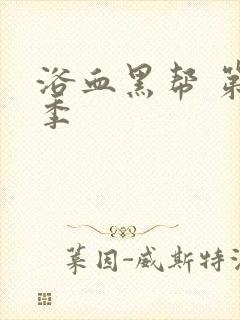 浴血黑帮 第
季
莱因-威斯特法